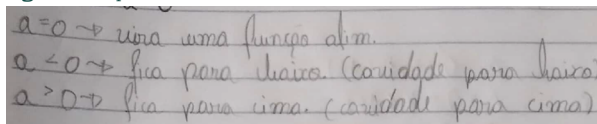 a=0 → vira uma função afim.
a<0 → fica para baixo. (concvidade para baixo)
a>0 → fica para cima. (concavidade para cima)